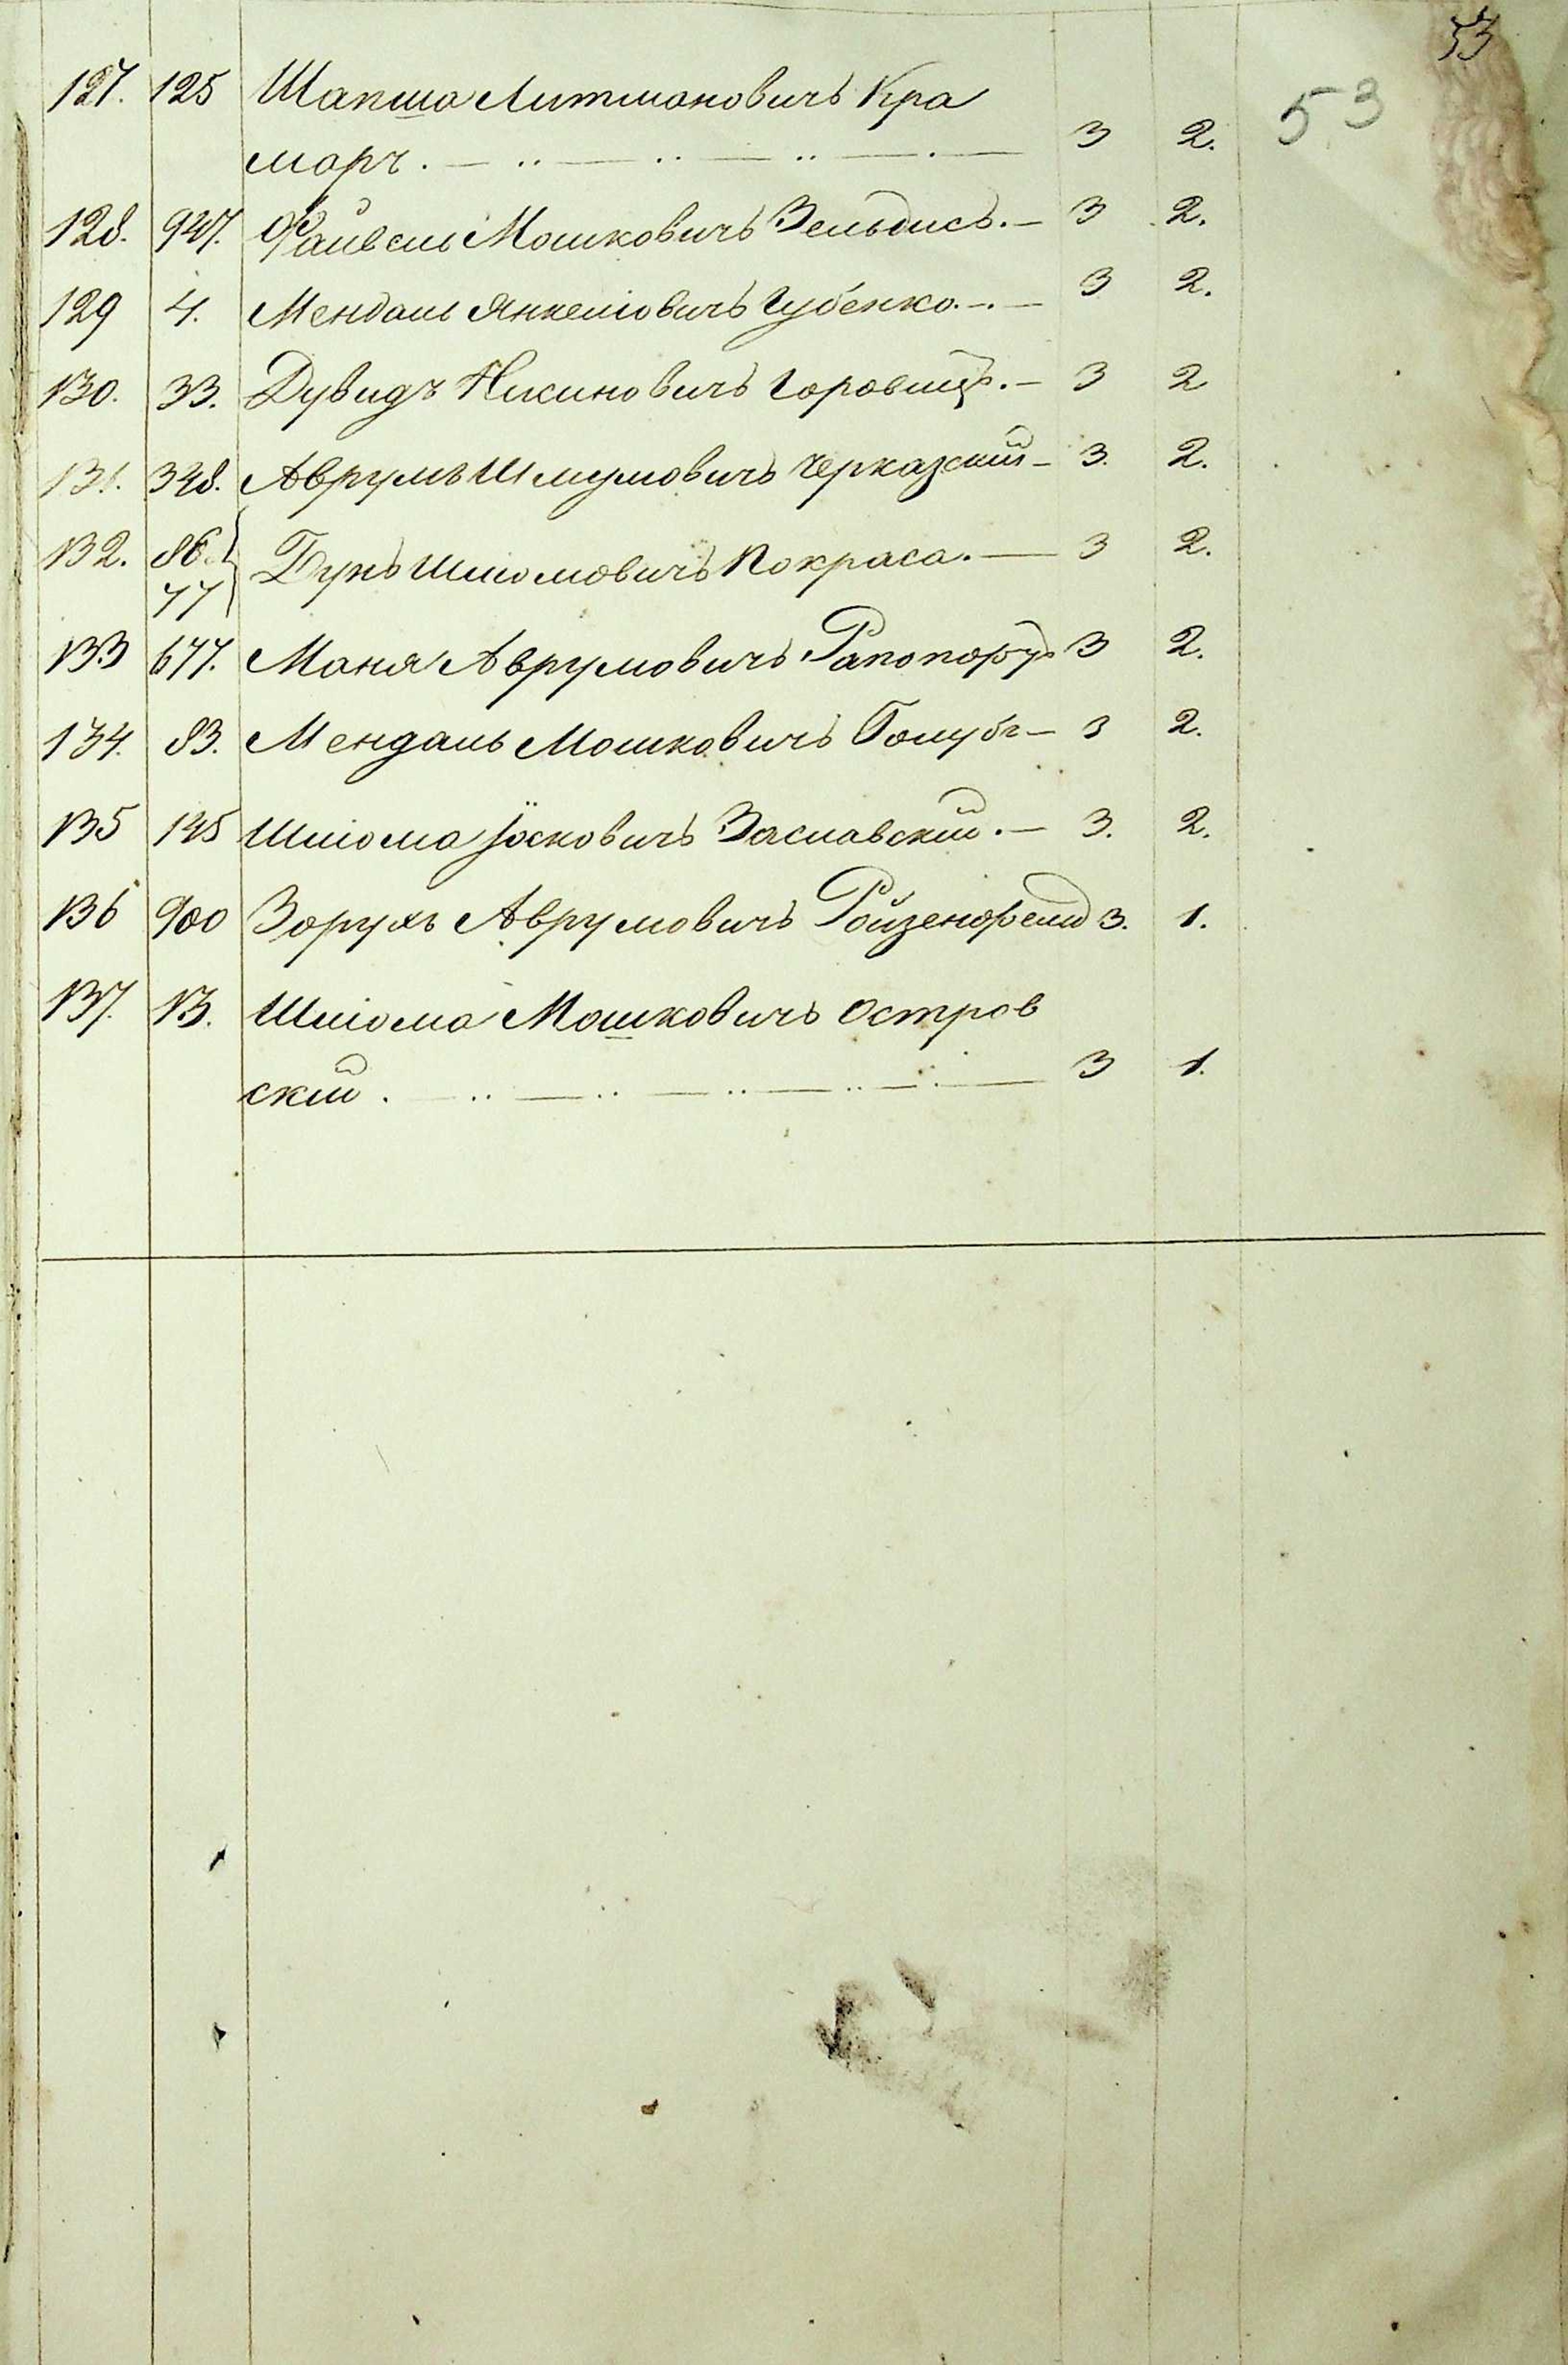 53
53
127. 125 Шапша Литмановичъ Кра
маръ. 3 2.
128. 947. Файвель Мошковичъ Зельдисъ. 3 2.
129 4. Мендаль Янкелiовичъ Губенко. 3 2.
130. 33. Дувидъ Нисиновичъ Горовицъ. 3 2
131. 328. Аврумъ Шмулiовичъ Черказскiй 3. 2.
132. 86. Бунъ Шлiомовичъ Покраса. 3 2.
77
133 677. Маня Аврумовичъ Рапопортъ 3 2.
134. 83. Мендаль Мошковичъ Голубъ 3 2.
135 145 Шлiома Iосковичъ Заславскiй. 3. 2.
136 900 Зорухъ Аврумовичъ Ройзенфельд 3. 1.
137. 13. Шлiома Мошковичъ Остров
скiй. 3 1.